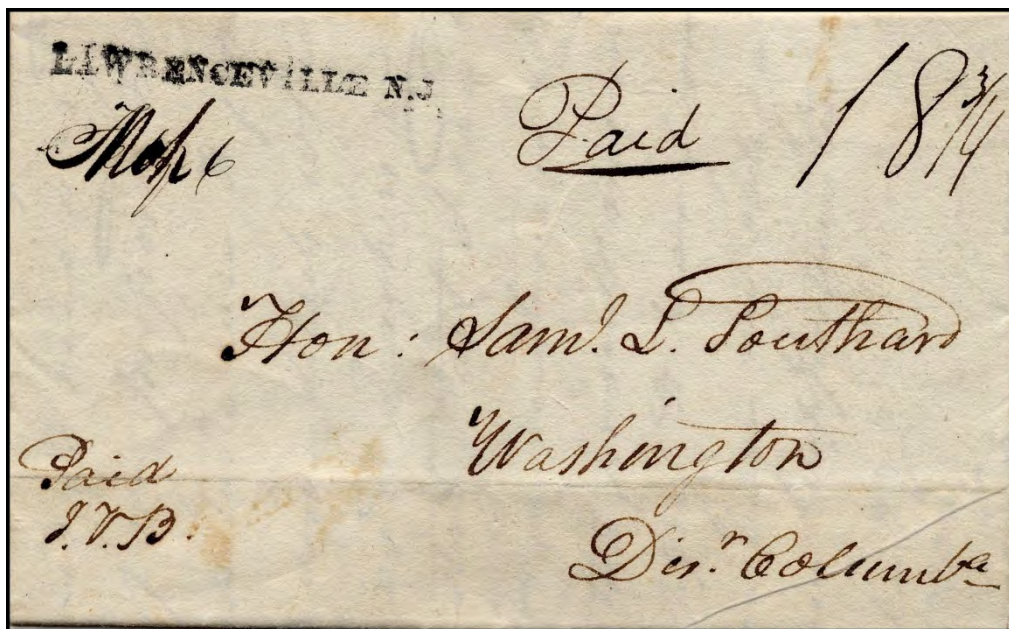 LAWRENCEVILLE N.J.
Paid 18 3/4
6
Hon: Saml. L. Southard
Washington
Dis.r Columba
Paid
J.V.B.